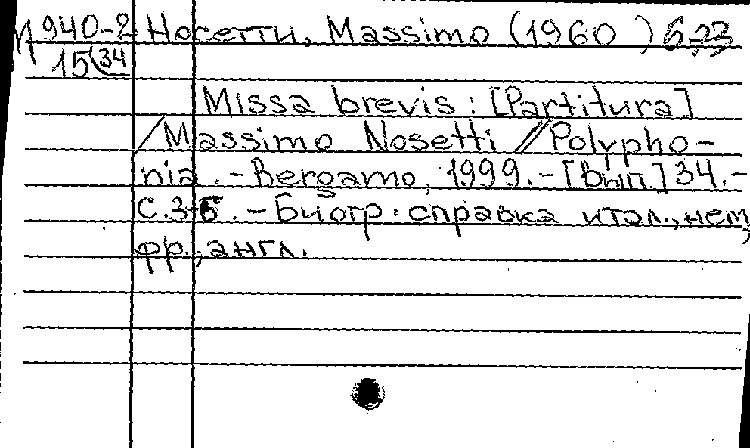 М 940-2 Носетти, Massimo (1960 )
15(34
Missa brevis : [Partitura]
/Massimo Nosetti //Polypho-
nia.-Bergamo, 1999.-[Вып] 34.-
С.3-6.-Биогр. справка итал., нем,
фр., англ.